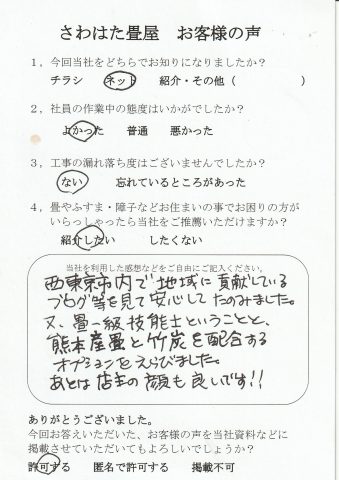 さわはた畳屋 お客様の声
1，今回当社をどちらでお知りになりましたか？
チラシ ネット 紹介・その他（ ）
2，社員の作業中の態度はいかがでしたか？
よかった 普通 悪かった
3，工事の漏れ落ち度はございませんでしたか？
ない 忘れているところがあった
4，畳やふすま・障子などお住まいの事でお困りの方が
いらっしゃったら当社をご推薦いただけますか？
紹介したい したくない
当社を利用した感想などをご自由にご記入ください。
西東京市内で地域に貢献している
ブログ等を見て安心してたのみました。
又、畳一級技能士ということと、
熊本産畳と竹炭を配合する
オプションをえらびました。
あとは店主の顔も良いです!!
ありがとうございました。
今回お答えいただいた、お客様の声を当社資料などに
掲載させていただいてもよろしいでしょうか？
許可する 匿名で許可する 掲載不可